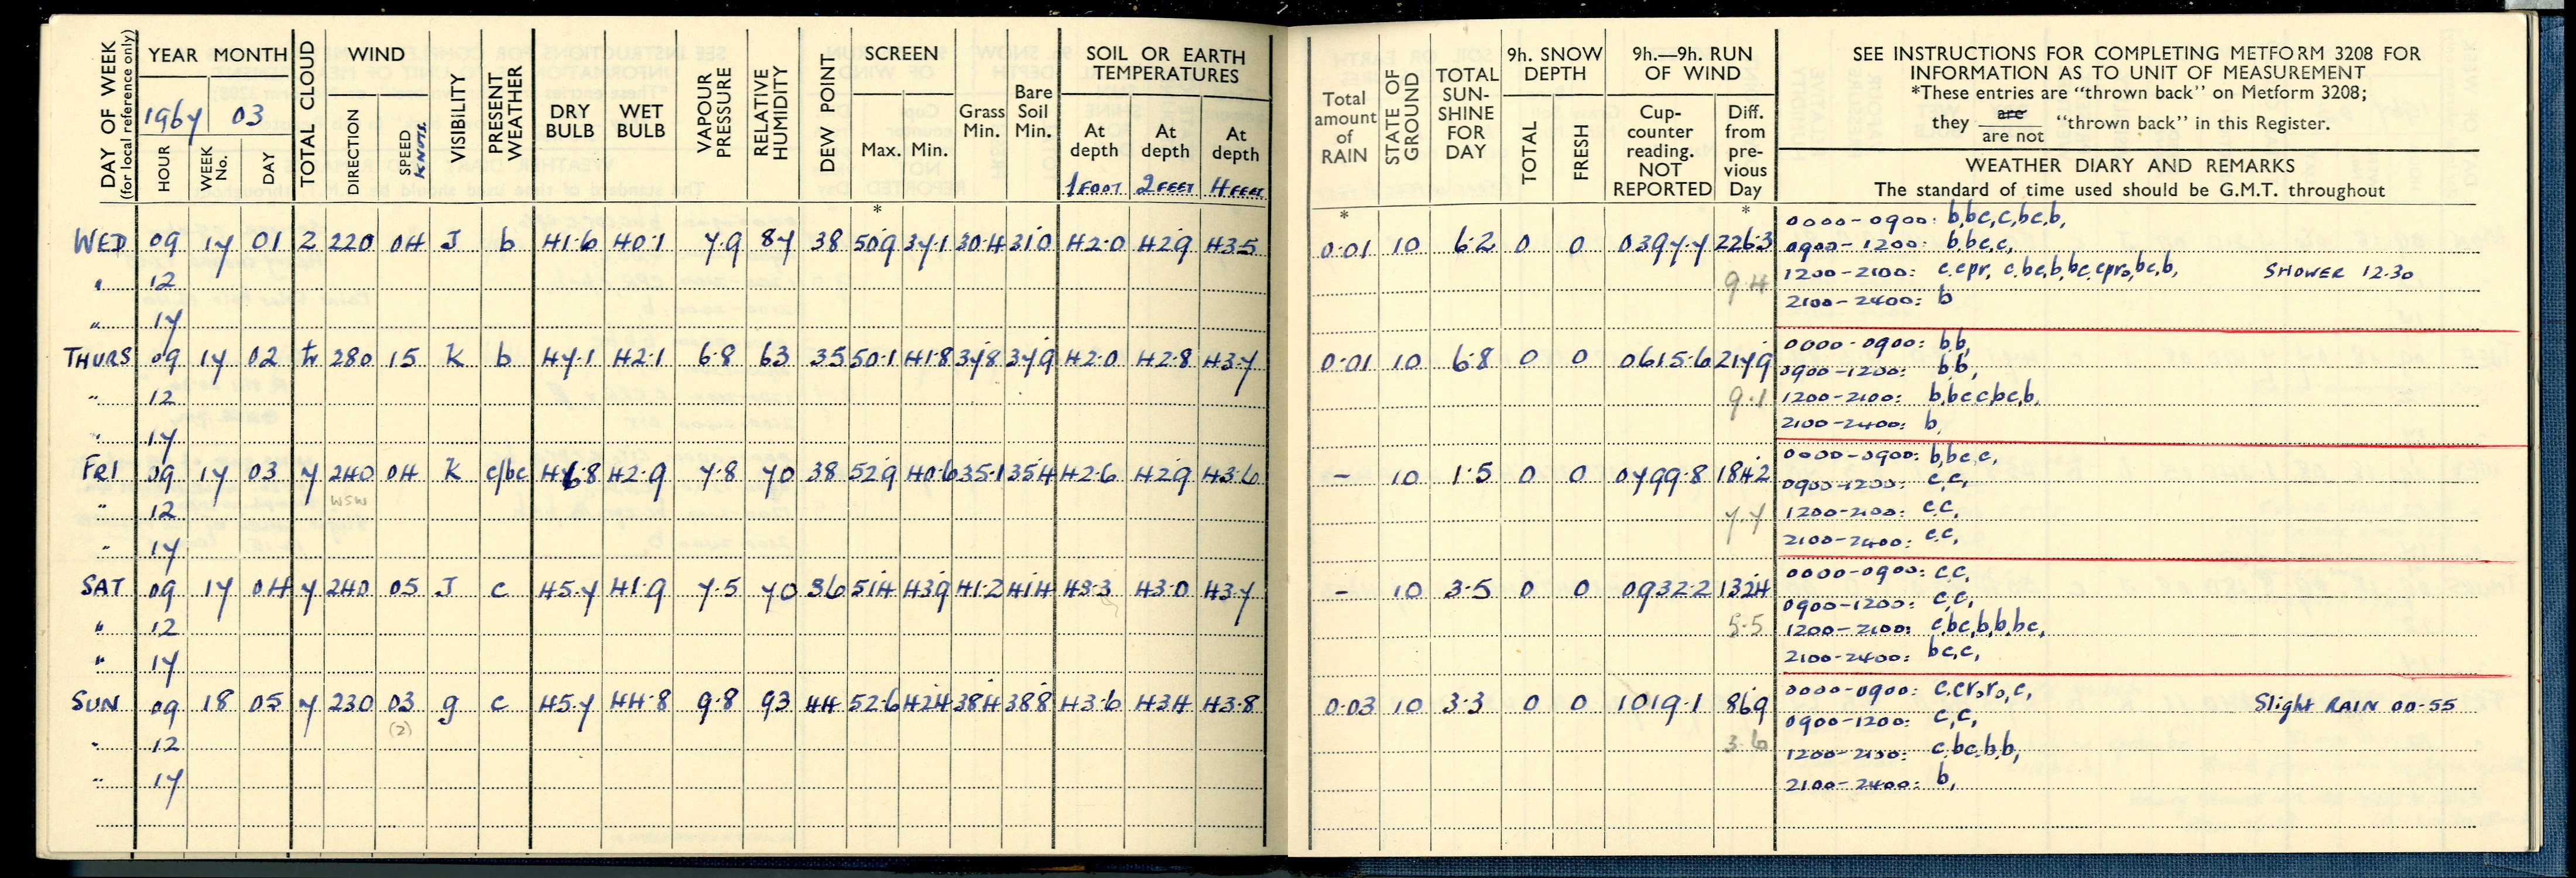 DAY OF WEEK (for local reference only) YEAR MONTH TOTAL CLOUD WIND VISIBILITY PRESENT WEATHER DRY BULB WET BULB VAPOUR PRESSURE RELATIVE HUMIDITY DEW POINT SCREEN Grass Min. Bare Soil Min. SOIL OR EARTH TEMPERATURES
1967 03
HOUR WEEK No. DAY DIRECTION SPEED KNOTS Max. Min. At depth At depth At depth
1 FOOT 2 FEET 4 FEET
*
WED 09 17 01 2 220 04 J b 41.6 40.1 7.9 87 38 50.9 37.1 30.4 31.0 42.0 42.9 43.5
" 12
" 17
THURS 09 17 02 280 15 K b 47.1 42.1 6.8 63 35 50.1 41.8 37.8 37.9 42.0 42.8 43.7
" 12
" 17
FRI 09 17 03 7 240 04 K c/bc 46.8 42.9 7.8 70 38 52.9 40.6 35.1 35.4 42.6 42.9 43.6
WSW
" 12
" 17
SAT 09 17 04 7 240 05 J c 45.7 41.9 7.5 70 36 51.4 43.9 41.2 41.4 43.3 43.0 43.7
" 12
" 17
SUN 09 18 05 7 230 03 g c 45.7 44.8 9.8 93 44 52.6 42.4 38.4 38.8 43.6 43.4 43.8
(2)
" 12
" 17
Total amount of RAIN STATE OF GROUND TOTAL SUN-SHINE FOR DAY 9h. SNOW DEPTH 9h.—9h. RUN OF WIND
TOTAL FRESH Cup-counter reading. NOT REPORTED Diff. from pre-vious Day
SEE INSTRUCTIONS FOR COMPLETING METFORM 3208 FOR
INFORMATION AS TO UNIT OF MEASUREMENT
*These entries are "thrown back" on Metform 3208;
they are / are not "thrown back" in this Register.
WEATHER DIARY AND REMARKS
The standard of time used should be G.M.T. throughout
* *
0000-0900: b,bc,c,bc,b,
0.01 10 6.2 0 0 0397.7 226.3 0900-1200: b,bc,c,
9.4 1200-2100: c,cpr, c,bc,b,bc,cpr₀,bc,b, SHOWER 12.30
2100-2400: b
0000-0900: b,b,
0.01 10 6.8 0 0 0615.6 217.9 0900-1200: b,b,
9.1 1200-2100: b,bc,c,bc,b,
2100-2400: b,
0000-0900: b,bc,c,
- 10 1.5 0 0 0799.8 184.2 0900-1200: c,c,
7.7 1200-2100: c,c,
2100-2400: c,c,
0000-0900: c,c,
- 10 3.5 0 0 0932.2 132.4 0900-1200: c,c,
5.5 1200-2100: c,bc,b,b,bc,
2100-2400: bc,c,
0000-0900: c,cr₀,r₀,c,
0.03 10 3.3 0 0 1019.1 86.9 Slight RAIN 00-55
0900-1200: c,c,
3.6 1200-2100: c,bc,b,b,
2100-2400: b,